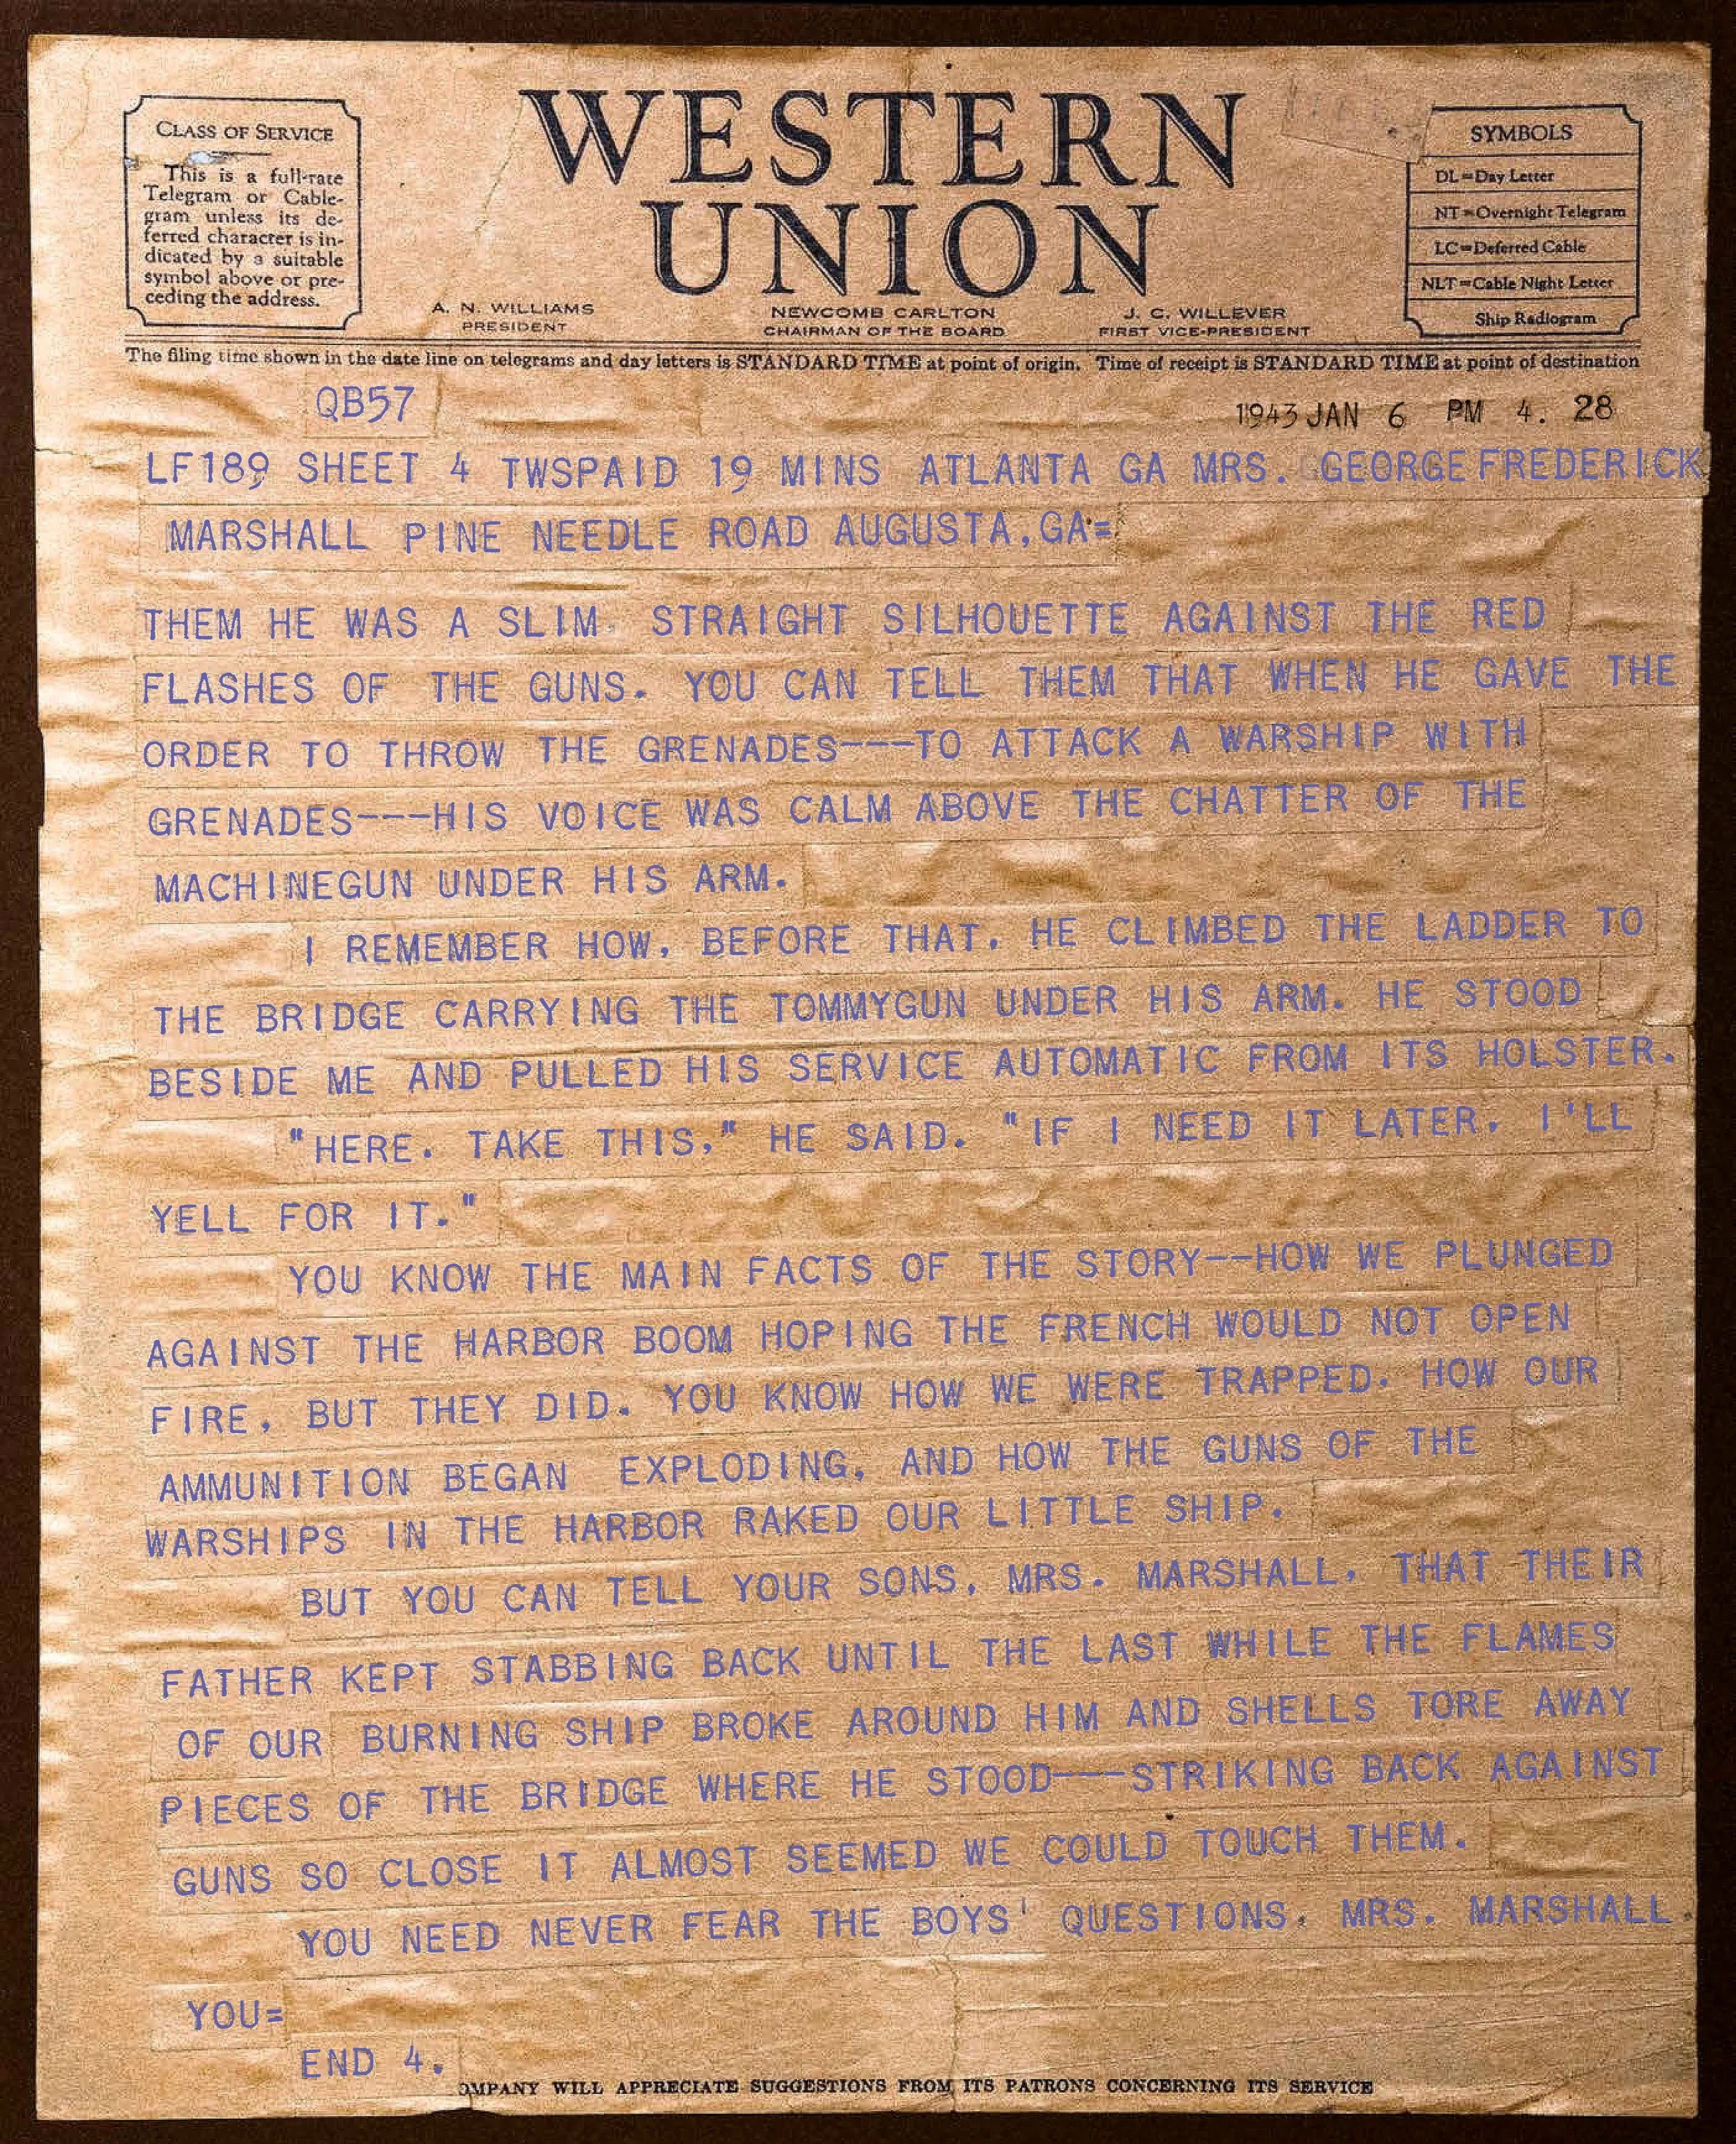 WESTERN
UNION
CLASS OF SERVICE
This is a full-rate
Telegram or Cable-
gram unless its de-
ferred character is in-
dicated by a suitable
symbol above or pre-
ceding the address.
SYMBOLS
DL=Day Letter
NT=Overnight Telegram
LC=Deferred Cable
NLT=Cable Night Letter
Ship Radiogram
A. N. WILLIAMS
PRESIDENT
NEWCOMB CARLTON
CHAIRMAN OF THE BOARD
J. C. WILLEVER
FIRST VICE-PRESIDENT
The filing time shown in the date line on telegrams and day letters is STANDARD TIME at point of origin. Time of receipt is STANDARD TIME at point of destination
QB57
1943 JAN 6 PM 4. 28
LF189 SHEET 4 TWSPAID 19 MINS ATLANTA GA MRS. GEORGE FREDERICK
MARSHALL PINE NEEDLE ROAD AUGUSTA,GA=
THEM HE WAS A SLIM. STRAIGHT SILHOUETTE AGAINST THE RED
FLASHES OF THE GUNS. YOU CAN TELL THEM THAT WHEN HE GAVE THE
ORDER TO THROW THE GRENADES---TO ATTACK A WARSHIP WITH
GRENADES---HIS VOICE WAS CALM ABOVE THE CHATTER OF THE
MACHINEGUN UNDER HIS ARM.
I REMEMBER HOW, BEFORE THAT, HE CLIMBED THE LADDER TO
THE BRIDGE CARRYING THE TOMMYGUN UNDER HIS ARM. HE STOOD
BESIDE ME AND PULLED HIS SERVICE AUTOMATIC FROM ITS HOLSTER.
"HERE. TAKE THIS," HE SAID. "IF I NEED IT LATER, I'LL
YELL FOR IT."
YOU KNOW THE MAIN FACTS OF THE STORY--HOW WE PLUNGED
AGAINST THE HARBOR BOOM HOPING THE FRENCH WOULD NOT OPEN
FIRE, BUT THEY DID. YOU KNOW HOW WE WERE TRAPPED. HOW OUR
AMMUNITION BEGAN EXPLODING, AND HOW THE GUNS OF THE
WARSHIPS IN THE HARBOR RAKED OUR LITTLE SHIP.
BUT YOU CAN TELL YOUR SONS, MRS. MARSHALL, THAT THEIR
FATHER KEPT STABBING BACK UNTIL THE LAST WHILE THE FLAMES
OF OUR BURNING SHIP BROKE AROUND HIM AND SHELLS TORE AWAY
PIECES OF THE BRIDGE WHERE HE STOOD---STRIKING BACK AGAINST
GUNS SO CLOSE IT ALMOST SEEMED WE COULD TOUCH THEM.
YOU NEED NEVER FEAR THE BOYS' QUESTIONS, MRS. MARSHALL.
YOU=
END 4.
OMPANY WILL APPRECIATE SUGGESTIONS FROM ITS PATRONS CONCERNING ITS SERVICE